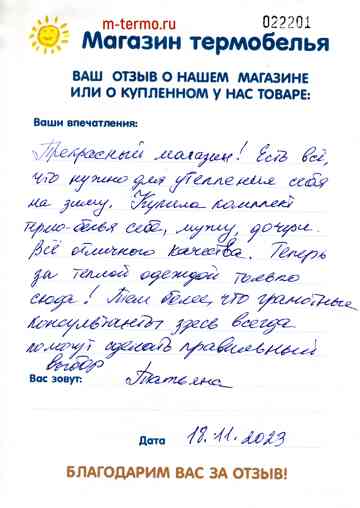 m-termo.ru
022201
Магазин термобелья
ВАШ ОТЗЫВ О НАШЕМ МАГАЗИНЕ
ИЛИ О КУПЛЕННОМ У НАС ТОВАРЕ:
Ваши впечатления:
Прекрасный магазин! Есть всё,
что нужно для утепления себя
на зиму. Купила комплект
термо-белья себе, мужу, дочери.
Всё отличного качества. Теперь
за тёплой одеждой только
сюда! Тем более, что грамотные
консультанты здесь всегда
помогут сделать правильный
выбор
Вас зовут: Татьяна
Дата 18.11.2023
БЛАГОДАРИМ ВАС ЗА ОТЗЫВ!